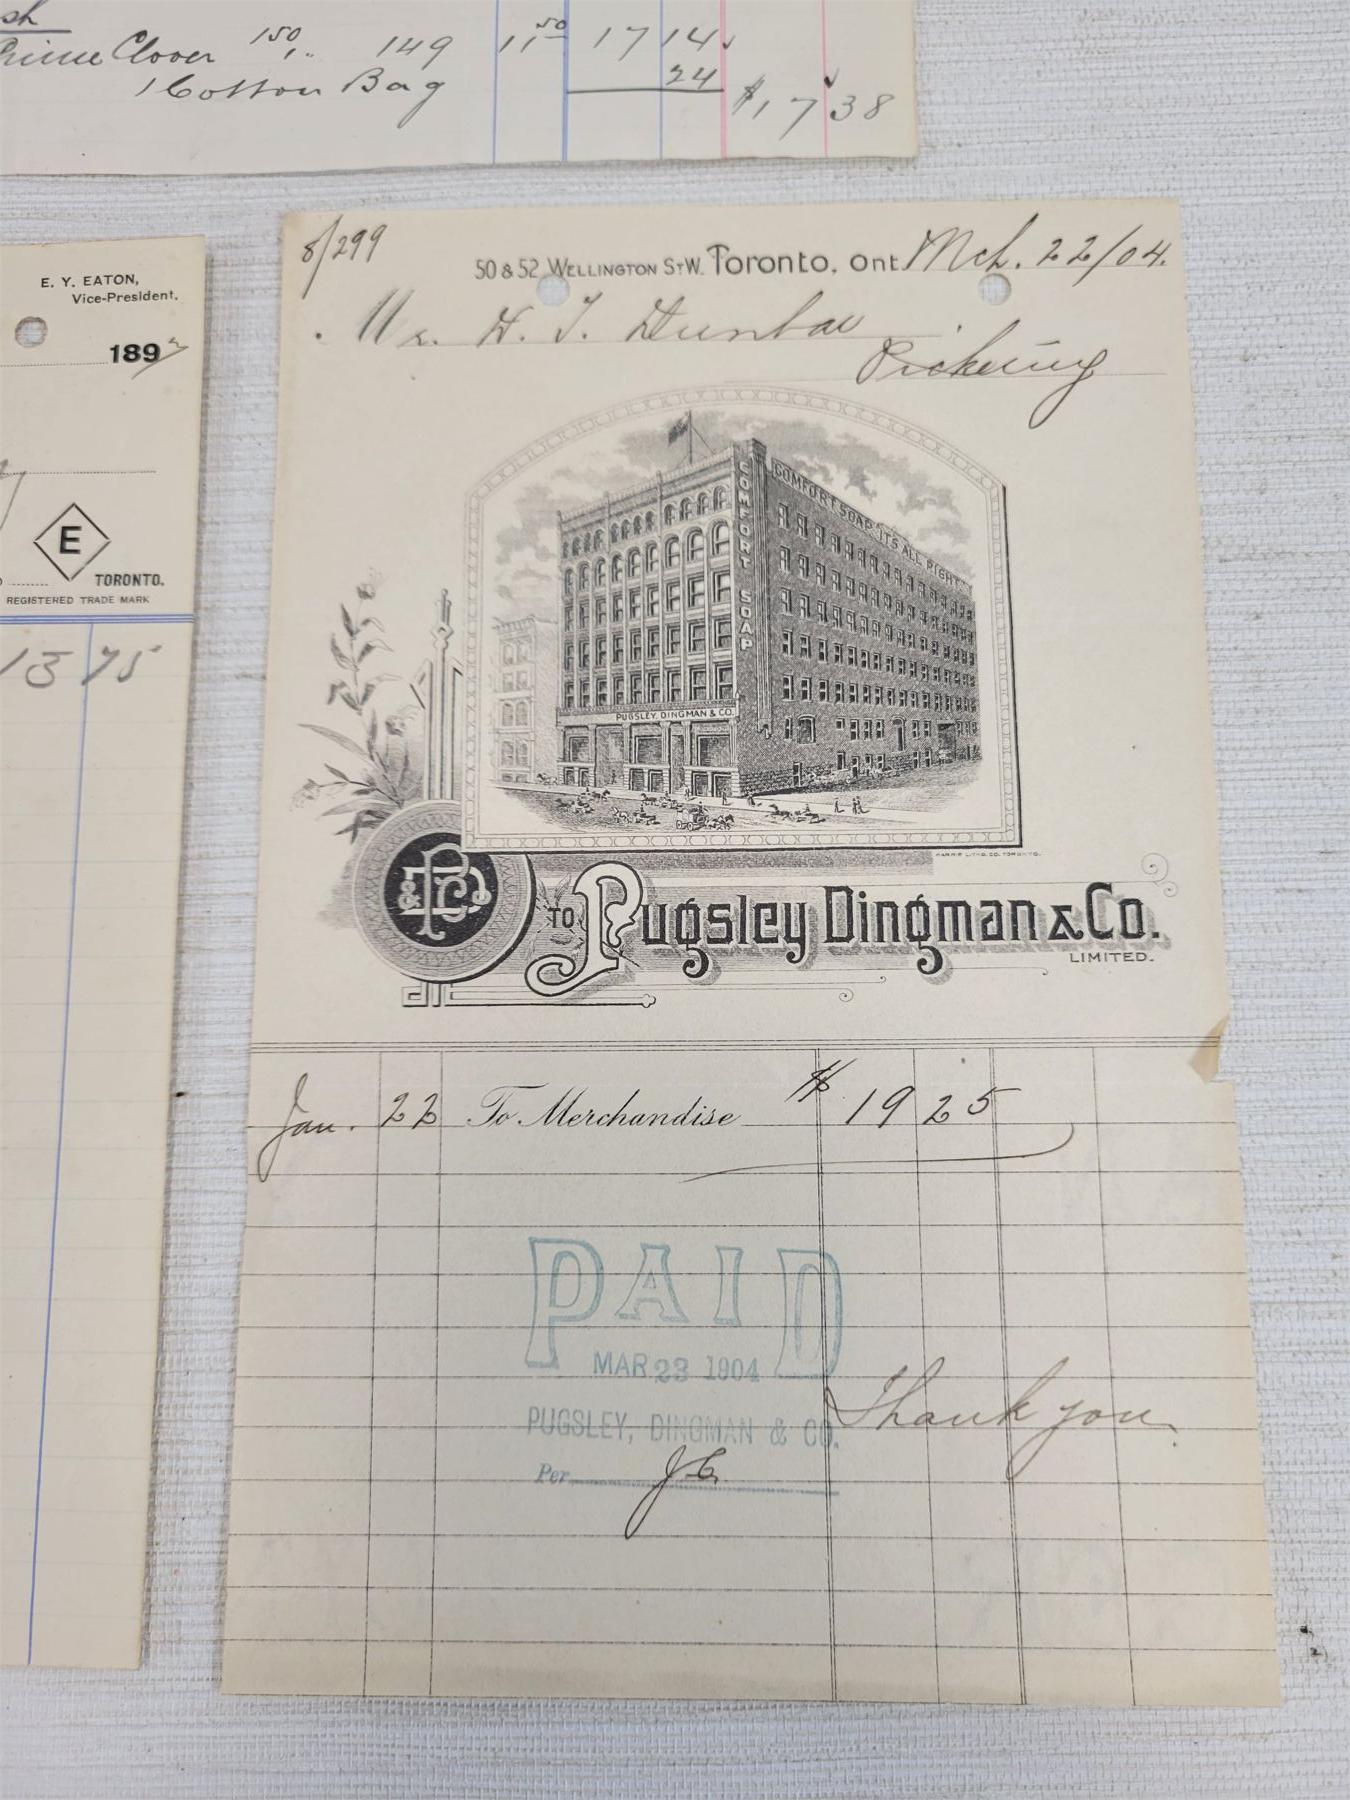 Prime Clover 150 149 11 50 17 14
1 Cotton Bag 24
$17 38
E. Y. EATON,
Vice-President.
189
E
TORONTO.
REGISTERED TRADE MARK
13 75
8/299
50 & 52 WELLINGTON ST W. Toronto, Ont Mch. 22/04.
Mr. W. T. Dunbar
Pickering
COMFORT SOAP
COMFORT SOAP "ITS ALL RIGHT"
PUGSLEY, DINGMAN & CO.
HARRIS LITHO. CO. TORONTO.
TO Pugsley Dingman & Co.
LIMITED.
Jan. 22 To Merchandise $ 19 25
PAID
MAR 23 1904
PUGSLEY, DINGMAN & CO.
Thank you.
Per